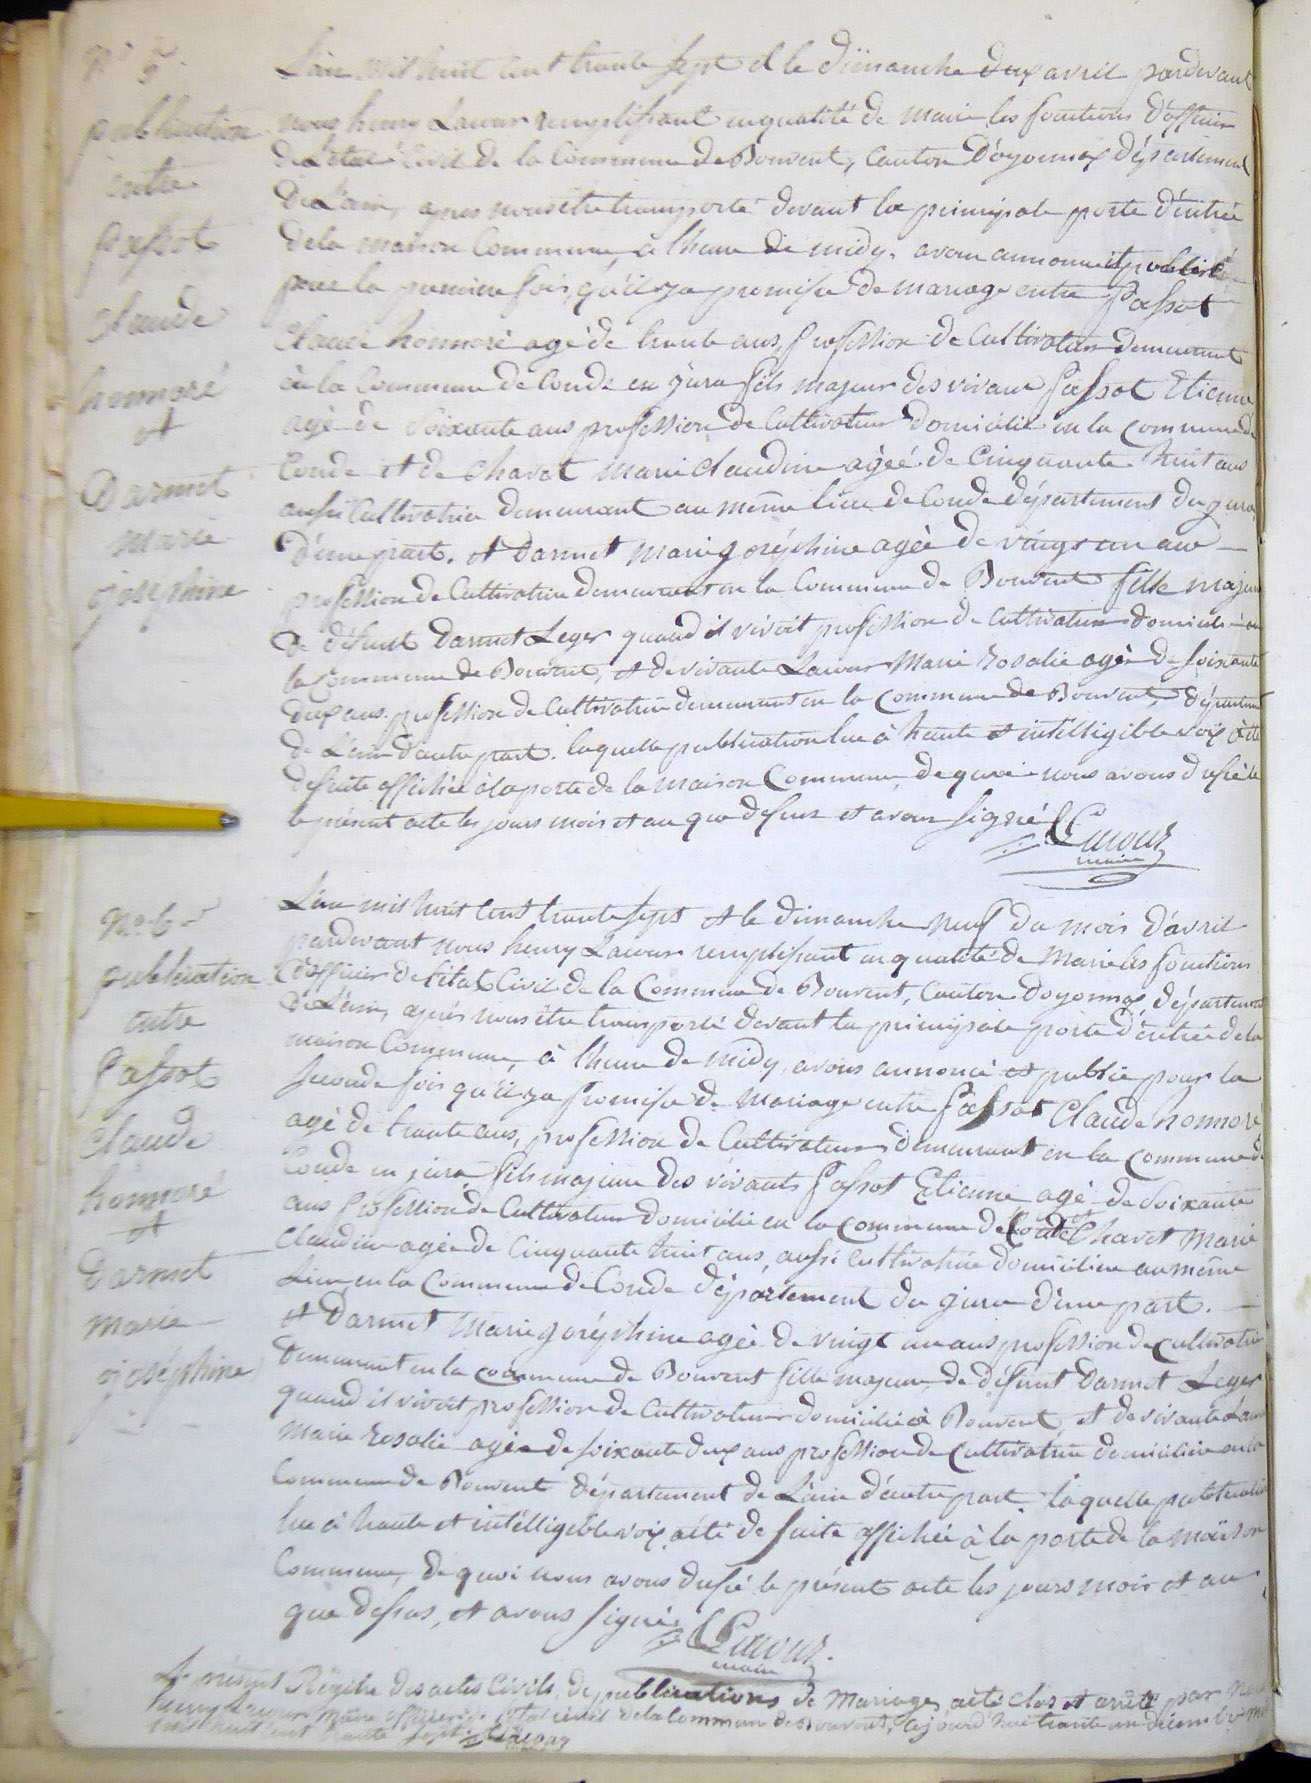 N° 5
publication
entre
passot
claude
honnoré
et
Darmet
marie
joséphine
L'an mil huit cent trente sept et le dimanche deux avril pardevant
nous henry Lacour remplissant en qualité de maire les fonctions d'officier
de L'état Civil de la Commune de Bouvent, Canton d'oyonnax département
de L'ain, apres nous être transporté devant la principale porte d'entrée
de la maison Commune, à lheure de midy, avons annoncé et publié
pour la premiere fois, qu'il y a promesse de mariage entre Passot
Claude honnoré agé de trente ans, profession de Cultivateur demeurant
en la Commune de Conde en jura fils majeur des vivans Passot Etienne
agé de soixante ans profession de Cultivateur domicilié en la commune de
Conde et de Chavet marie claudine agéé de Cinquante huit ans
aussi Cultivatrice demeurant au même lieu de Conde département du jura
d'une part. et Darmet marie joséphine agéé de vingt un ans
profession de Cultivatrice demeurant en la Commune de Bouvent fille majeure
de défunt Darmet Leger quand il vivoit profession de cultivateur domicilié en
la Commune de Bouvent, et de vivante Lacour Marie rosalie agée de soixante
deux ans, profession de Cultivatrice demeurant en la commune de Bouvent, département
de L'ain d'autre part. laquelle publication lue à haute et intélligible voix a été
de suite affichée à la porte de la maison Commune, de quoi nous avons dressé le
le présent acte les jours mois et an que dessus et avons signé Lacour
maire
N° 6
publication
entre
passot
claude
honnoré
et
Darmet
marie
joséphine
L'an mil huit cent trente sept et le dimanche neuf du mois d'avril
pardevant nous henry Lacour remplissant en qualité de Maire les fonctions
d'officier de l'état Civil de la Commune de Bouvent, Canton d'oyonnax département
de L'ain, aprés nous être transporté devant la principale porte d'entrée de la
maison Commune, à lheure de midy, avons annoncé et publié pour la
seconde fois qu'il y a promesse de mariage entre passot Claude honnoré
agé de trente ans, profession de Cultivateur demeurant en la commune de
Conde en jura, fils majeur des vivants Passot Etienne agé de soixante
ans profession de Cultivateur domicilié en la commune de Conde et Chavet Marie
Claudine agée de Cinquante huit ans, aussi cultivatrice domiciliée au même
Lieu en la Commune de Conde département du jura d'une part.
et Darmet Marie joséphine agée de vingt un ans profession de cultivatrice
demeurant en la commune de Bouvent fille majeure de défunt Darmet Leger
quand il vivoit profession de Cultivateur domicilié à Bouvent, et de vivante Lacour
Marie rosalie agée de soixante deux ans profession de cultivatrice domiciliée en la
Commune de Bouvent département de L'ain d'autre part, laquelle publication
lue à haute et intélligible voix, a été de suite affichée à la porte de la maison
Commune, de quoi nous avons dressé le présent acte les jours mois et an
que dessus, et avons signé Lacour
maire
Le présent Régitre des actes Civils, de publications de Mariage, a été clos et arrêté par nous
henry Lacour Maire officier de L'état civil de la Commune de Bouvent, ce jourd'hui trente un décembre
mil huit cent trente sept. Lacour